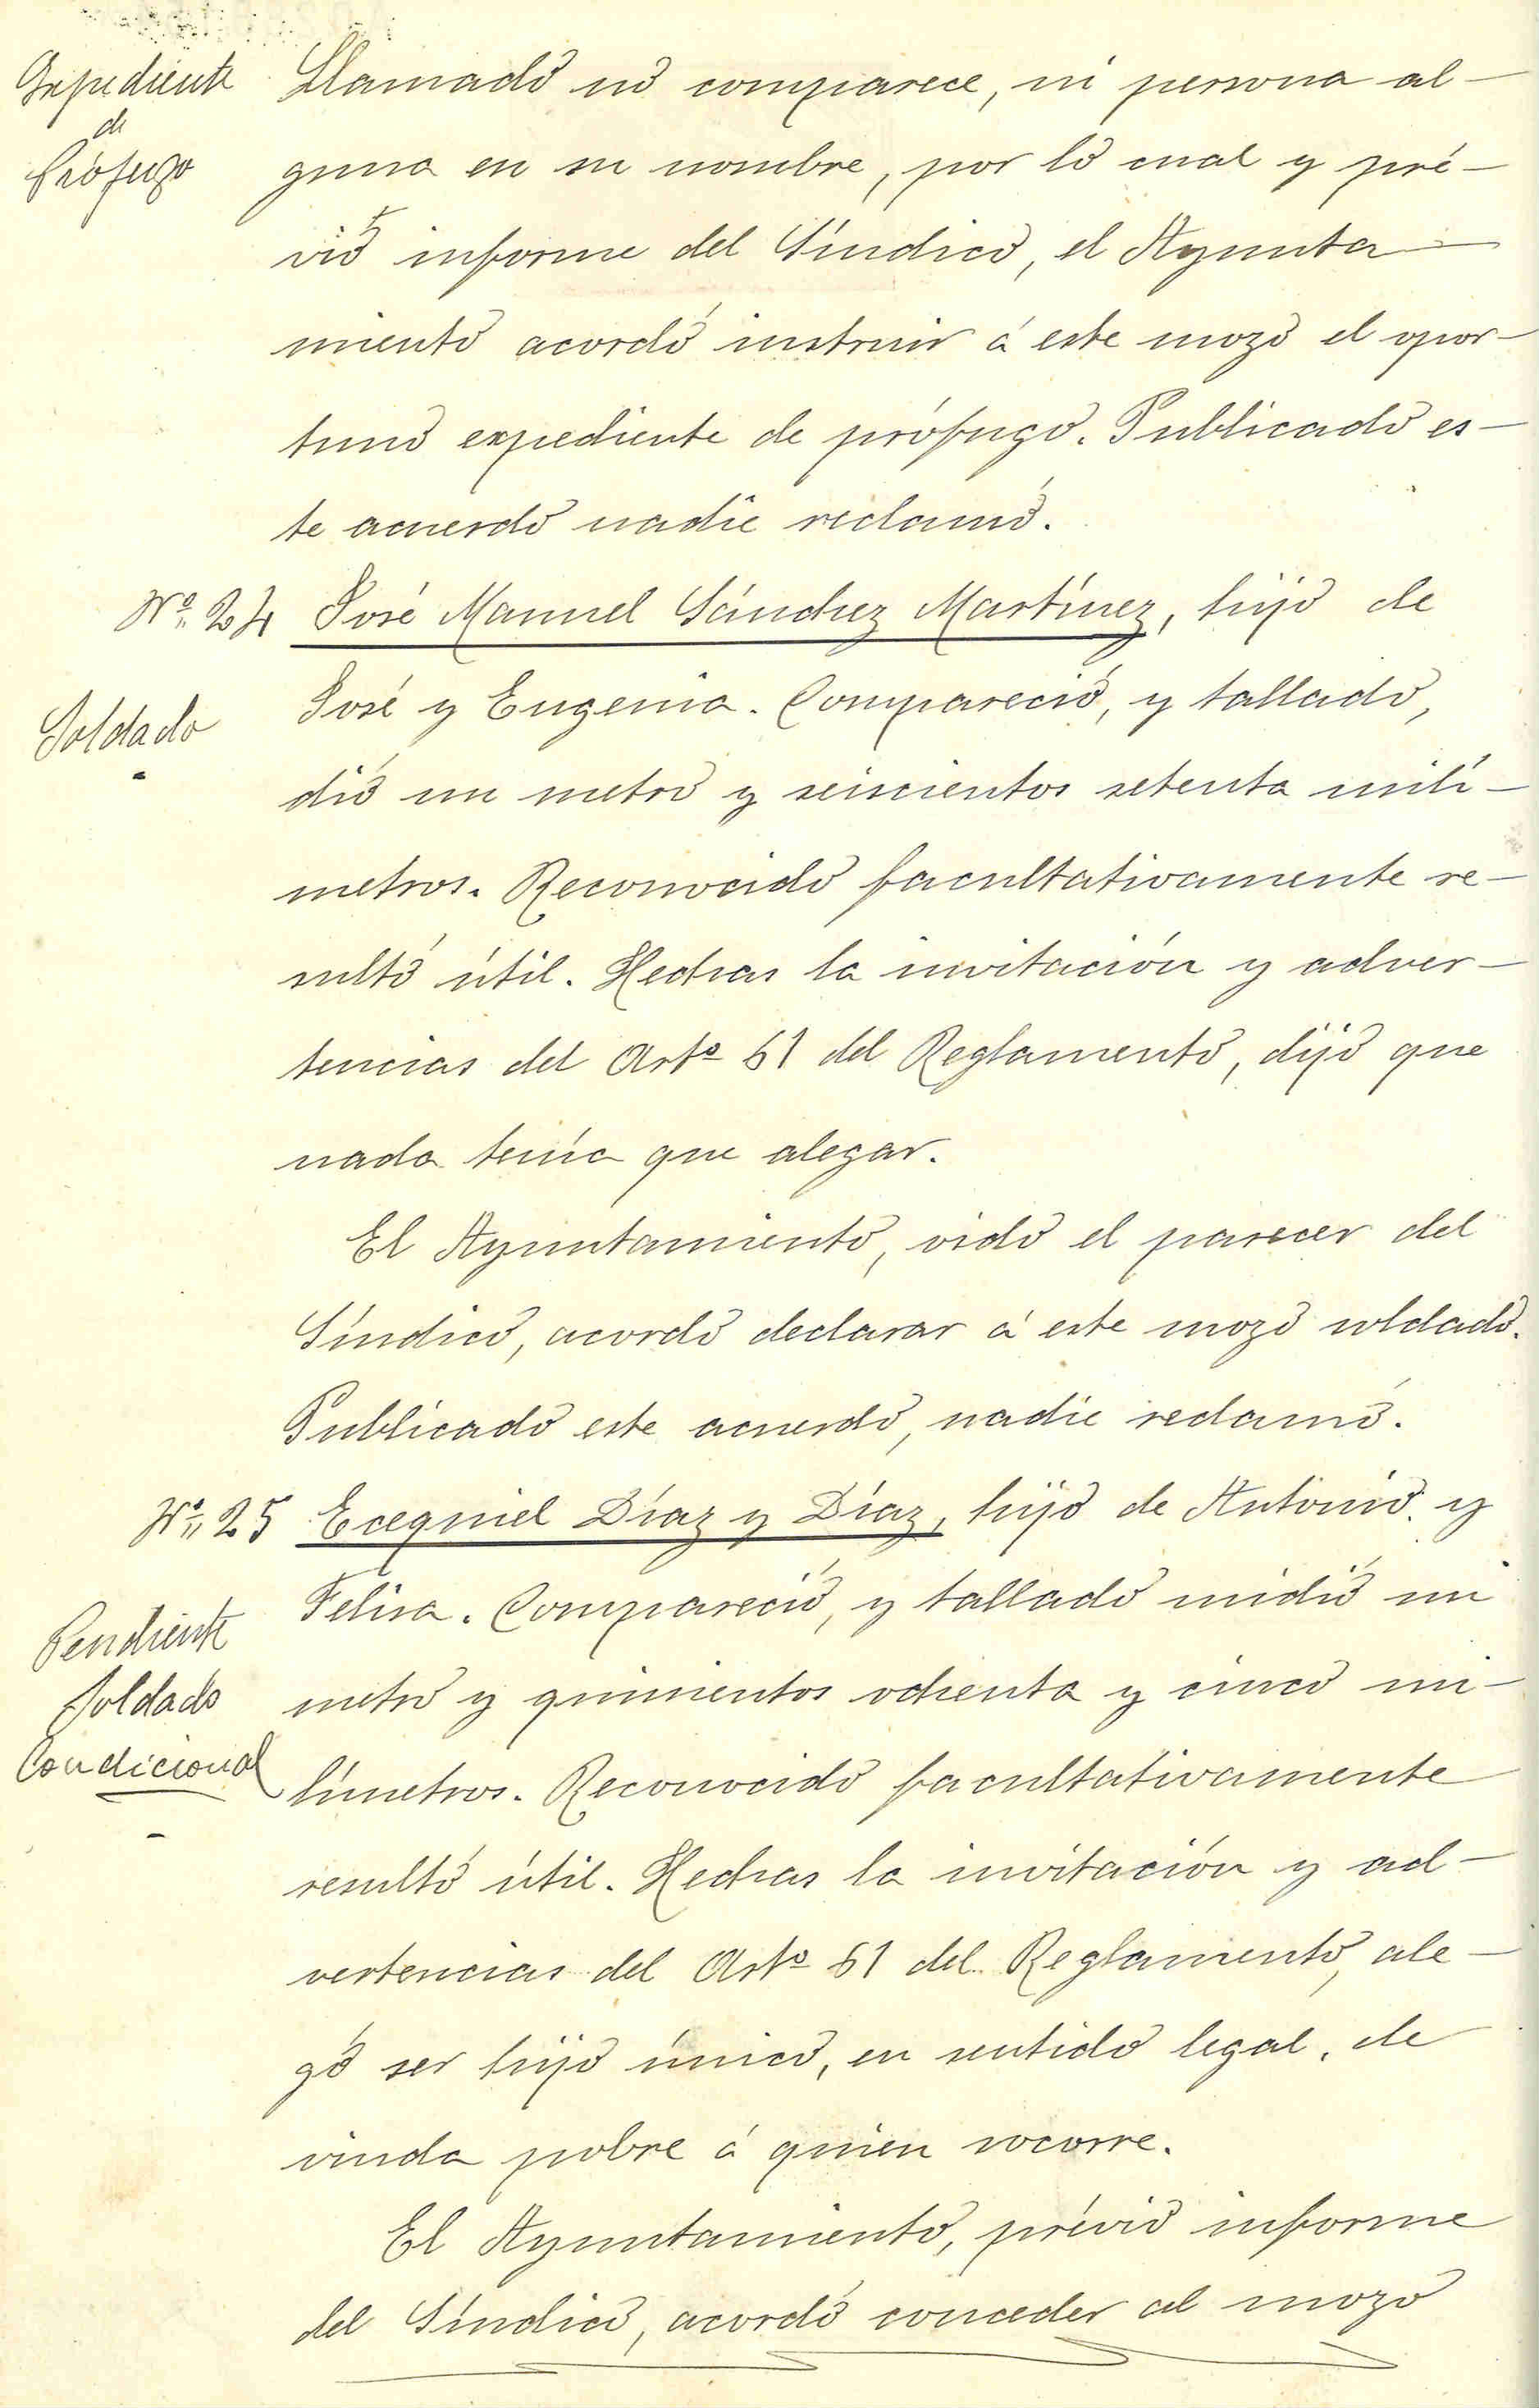 Expediente
de
Prófugo
Llamado no comparece, ni persona al-
guna en su nombre, por lo cual y pré-
vio informe del Síndico, el Ayunta-
miento acordó instruir á este mozo el opor-
tuno expediente de prófugo. Publicado es-
te acuerdo nadie reclamó.
Nº 24 José Manuel Sánchez Martínez, hijo de
Soldado
José y Eugenia. Compareció, y tallado,
dió un metro y seiscientos setenta milí-
metros. Reconocido facultativamente re-
sultó útil. Hechas la invitación y adver-
tencias del Artº 61 del Reglamento, dijo que
nada tenía que alegar.
El Ayuntamiento, oido el parecer del
Síndico, acordó declarar á este mozo soldado.
Publicado este acuerdo, nadie reclamó.
Nº 25 Ecequiel Díaz y Díaz, hijo de Antonio y
Pendiente
Soldado
Condicional
Felisa. Compareció, y tallado midió un
metro y quinientos ochenta y cinco mi-
límetros. Reconocido facultativamente
resultó útil. Hechas la invitación y ad-
vertencias del Artº 61 del Reglamento, ale-
gó ser hijo único, en sentido legal, de
viuda pobre á quien socorre.
El Ayuntamiento, prévio informe
del Síndico, acordó conceder al mozo